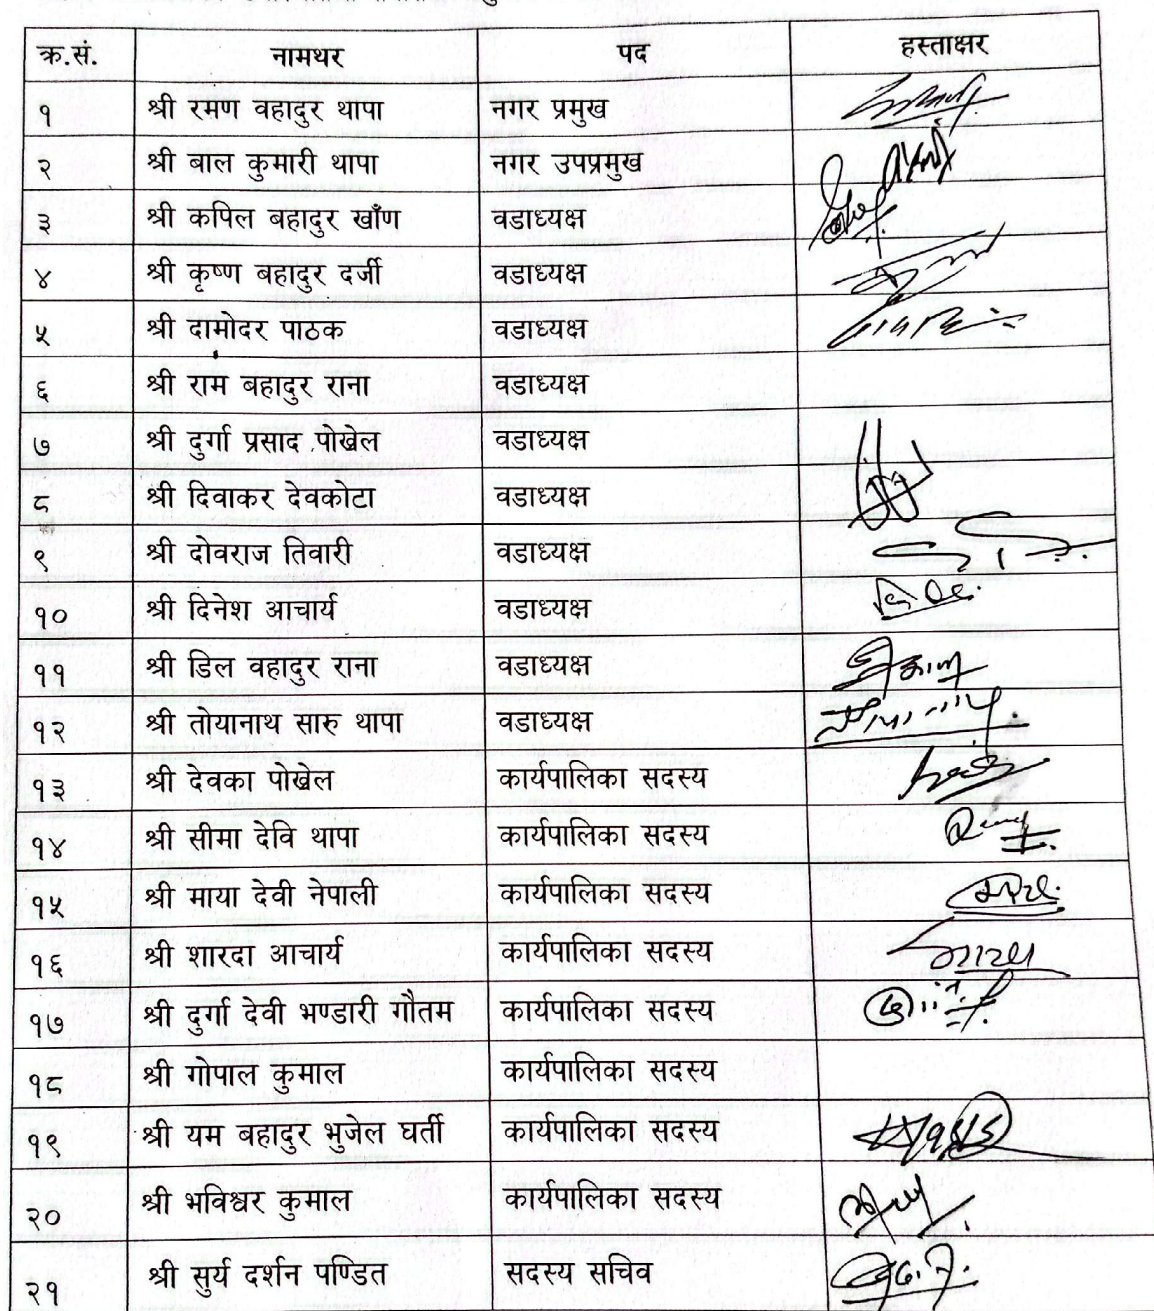 क्र.सं. नामथर पद हस्ताक्षर
१ श्री रमण वहादुर थापा नगर प्रमुख
२ श्री बाल कुमारी थापा नगर उपप्रमुख
३ श्री कपिल बहादुर खाँण वडाध्यक्ष
४ श्री कृष्ण बहादुर दर्जी वडाध्यक्ष
५ श्री दामोदर पाठक वडाध्यक्ष
६ श्री राम बहादुर राना वडाध्यक्ष
७ श्री दुर्गा प्रसाद पोखेल वडाध्यक्ष
८ श्री दिवाकर देवकोटा वडाध्यक्ष
९ श्री दोवराज तिवारी वडाध्यक्ष
१० श्री दिनेश आचार्य वडाध्यक्ष
११ श्री डिल वहादुर राना वडाध्यक्ष
१२ श्री तोयानाथ सारु थापा वडाध्यक्ष
१३ श्री देवका पोखेल कार्यपालिका सदस्य
१४ श्री सीमा देवि थापा कार्यपालिका सदस्य
१५ श्री माया देवी नेपाली कार्यपालिका सदस्य
१६ श्री शारदा आचार्य कार्यपालिका सदस्य
१७ श्री दुर्गा देवी भण्डारी गौतम कार्यपालिका सदस्य
१८ श्री गोपाल कुमाल कार्यपालिका सदस्य
१९ श्री यम बहादुर भुजेल घर्ती कार्यपालिका सदस्य
२० श्री भविश्वर कुमाल कार्यपालिका सदस्य
२१ श्री सुर्य दर्शन पण्डित सदस्य सचिव